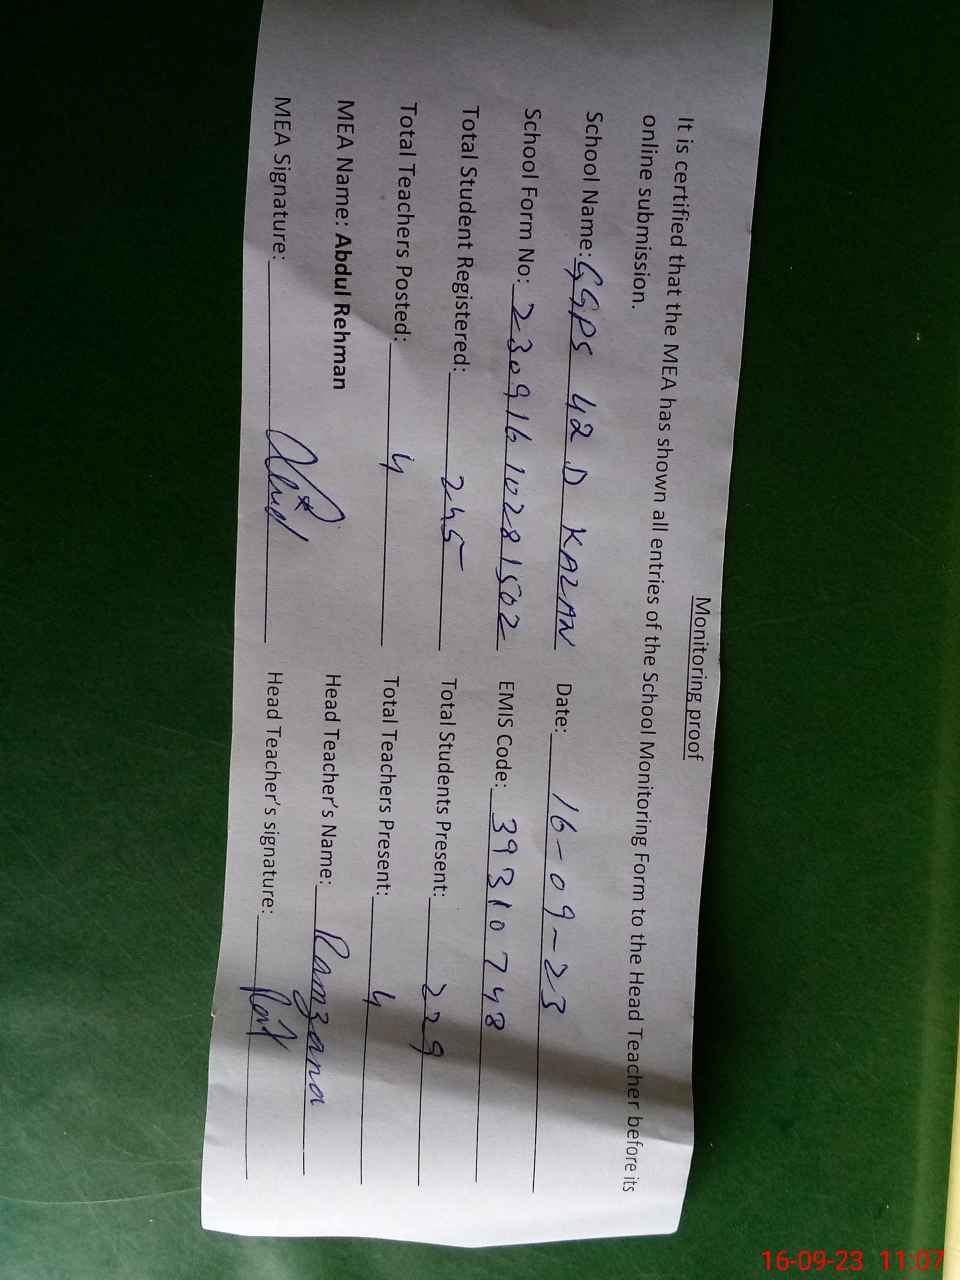 Monitoring proof
It is certified that the MEA has shown all entries of the School Monitoring Form to the Head Teacher before its
online submission.
School Name: GGPS 42 D KALAN Date: 16-09-23
School Form No: 230916 10281502 EMIS Code: 39310748
Total Student Registered: 245 Total Students Present: 229
Total Teachers Posted: 4 Total Teachers Present: 4
MEA Name: Abdul Rehman Head Teacher's Name: Ramzana
MEA Signature: Head Teacher's signature:
16-09-23 11:07